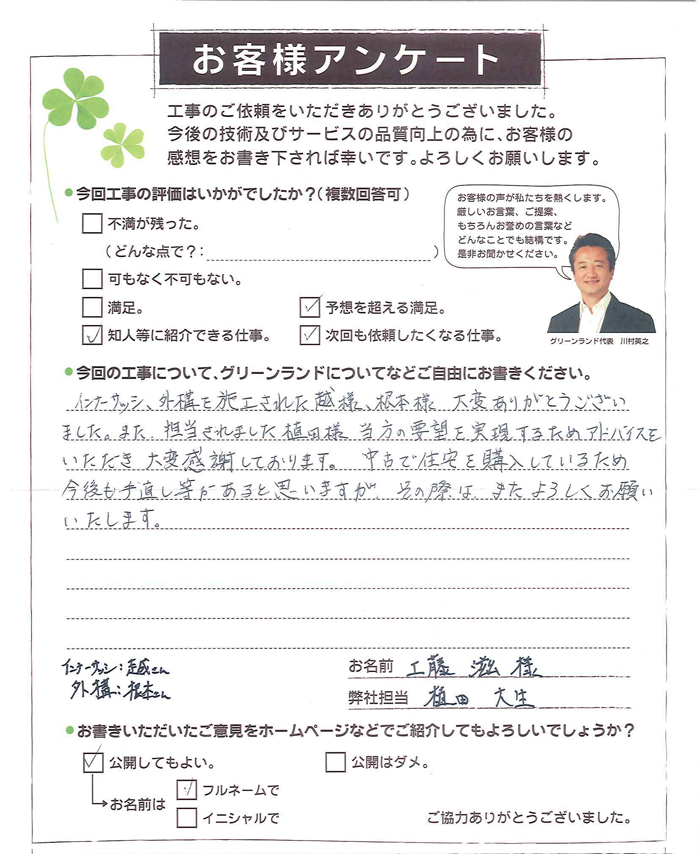 お客様アンケート
工事のご依頼をいただきありがとうございました。
今後の技術及びサービスの品質向上の為に、お客様の
感想をお書き下されば幸いです。よろしくお願いします。
今回工事の評価はいかがでしたか？（複数回答可）
不満が残った。
（どんな点で？：　）
可もなく不可もない。
満足。
予想を超える満足。
知人等に紹介できる仕事。
次回も依頼したくなる仕事。
お客様の声が私たちを熱くします。
厳しいお言葉、ご提案、
もちろんお誉めの言葉など
どんなことでも結構です。
是非お聞かせください。
グリーンランド代表　川村英之
今回の工事について、グリーンランドについてなどご自由にお書きください。
インナーサッシ、外構を施工された越様、根本様 大変ありがとうござい
ました。また、担当されました植田様 当方の要望を実現するためアドバイスを
いただき 大変感謝しております。 中古で住宅を購入しているため
今後も手直し等があると思いますが、その際は またよろしくお願い
いたします。
インナーサッシ：越さん
外構：根本さん
お名前 工藤 滋 様
弊社担当 植田 大生
お書きいただいたご意見をホームページなどでご紹介してもよろしいでしょうか？
公開してもよい。
公開はダメ。
お名前は
フルネームで
イニシャルで
ご協力ありがとうございました。